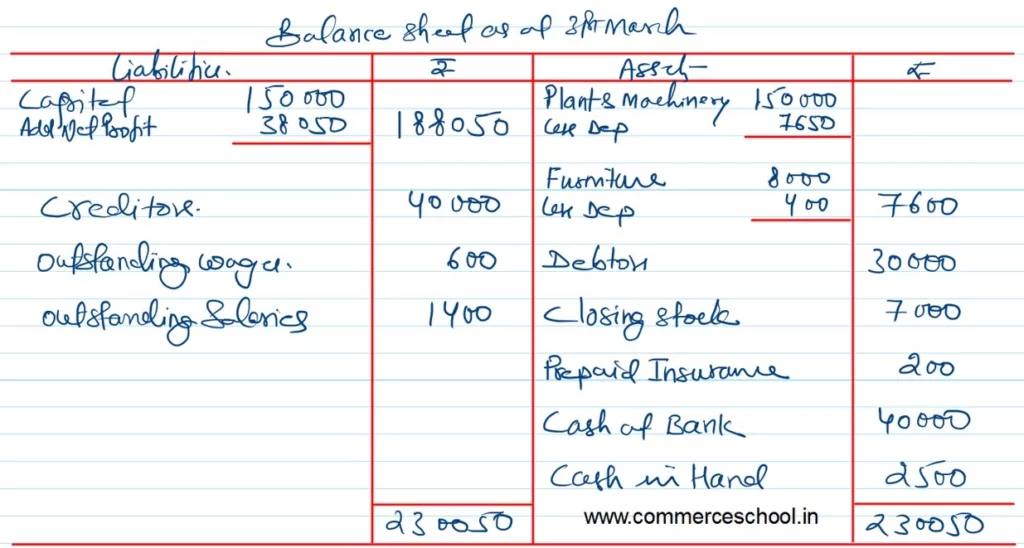 Balance sheet as at 31st March
Liabilities. ₹ Assets ₹
Capital 150000 Plant & Machinery 150000
Add Net Profit 38050 188050 Less Dep 7650
Furniture 8000
Creditors. 40000 Less Dep 400 7600
Outstanding wages. 600 Debtors 30000
Outstanding Salaries 1400 Closing stock 7000
Prepaid Insurance 200
Cash at Bank 40000
Cash in Hand 2500
230050 www.commerceschool.in 230050